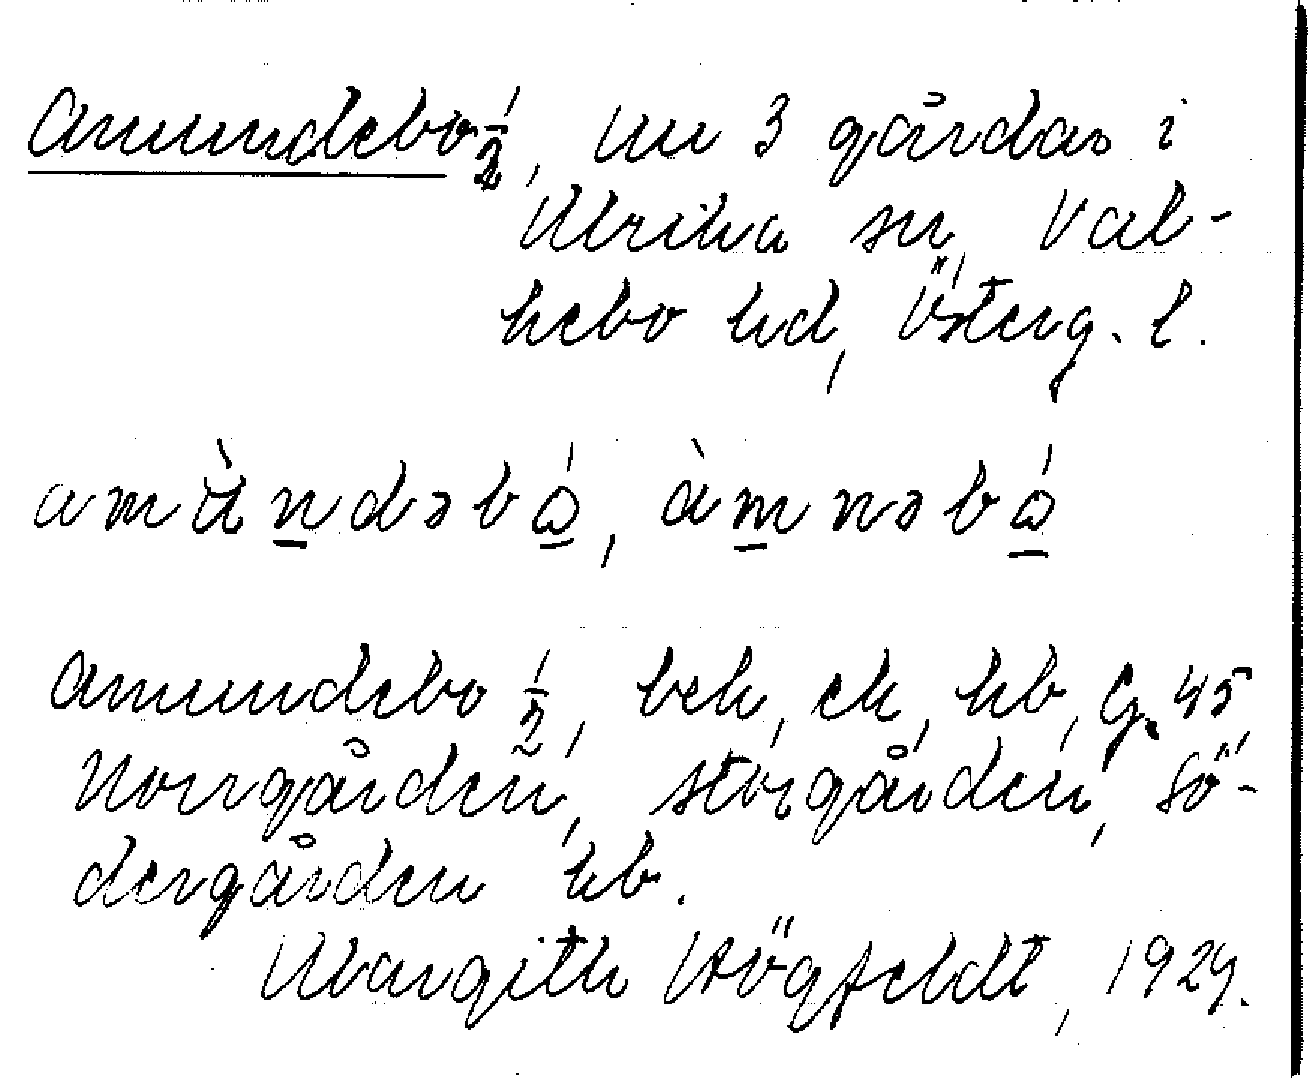 Amundebo ½, nu 3 gårdar i
Ulrika sn, Val-
kebo hd, Österg. l.
amùndəbó, àmnəbó
Amundebo ½, bek, ek, kb, G. 45,
Norrgården, Storgården, Sö-
dergården kb.
Margith Högfeldt, 1929.